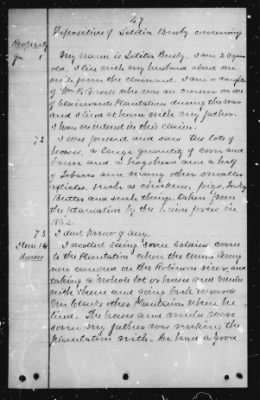 47
Deposition of Letitia Busby concerning
Property
My name is Letitia Busby. I am 28 years
old, I live with my husband about one
mile from the claimant. I am a daughter
of Wm R. who was an overseer on one
of claimants Plantation during the war
and lived at home with my father.
I have no interest in this claim.
72
I was present and saw the lots of
horses, a large quantity of corn and
bacon and a hogshead and a half
of Tobacco and many other smaller
articles, such as chickens, pigs, turkey
Butter and such things, taken from
the plantation by the Union forces in
1862.
73
I dont know of any.
Item 14
Horses
I recollect seeing some soldiers come
to the Plantation when the Union Army
was camped on the Robinson river and
taking a whole lot of horses and mules
with them and going back towards
Mr Clark's other Plantation where he
lived. The horses and mules were
some my father was working the
plantation with. He had a good